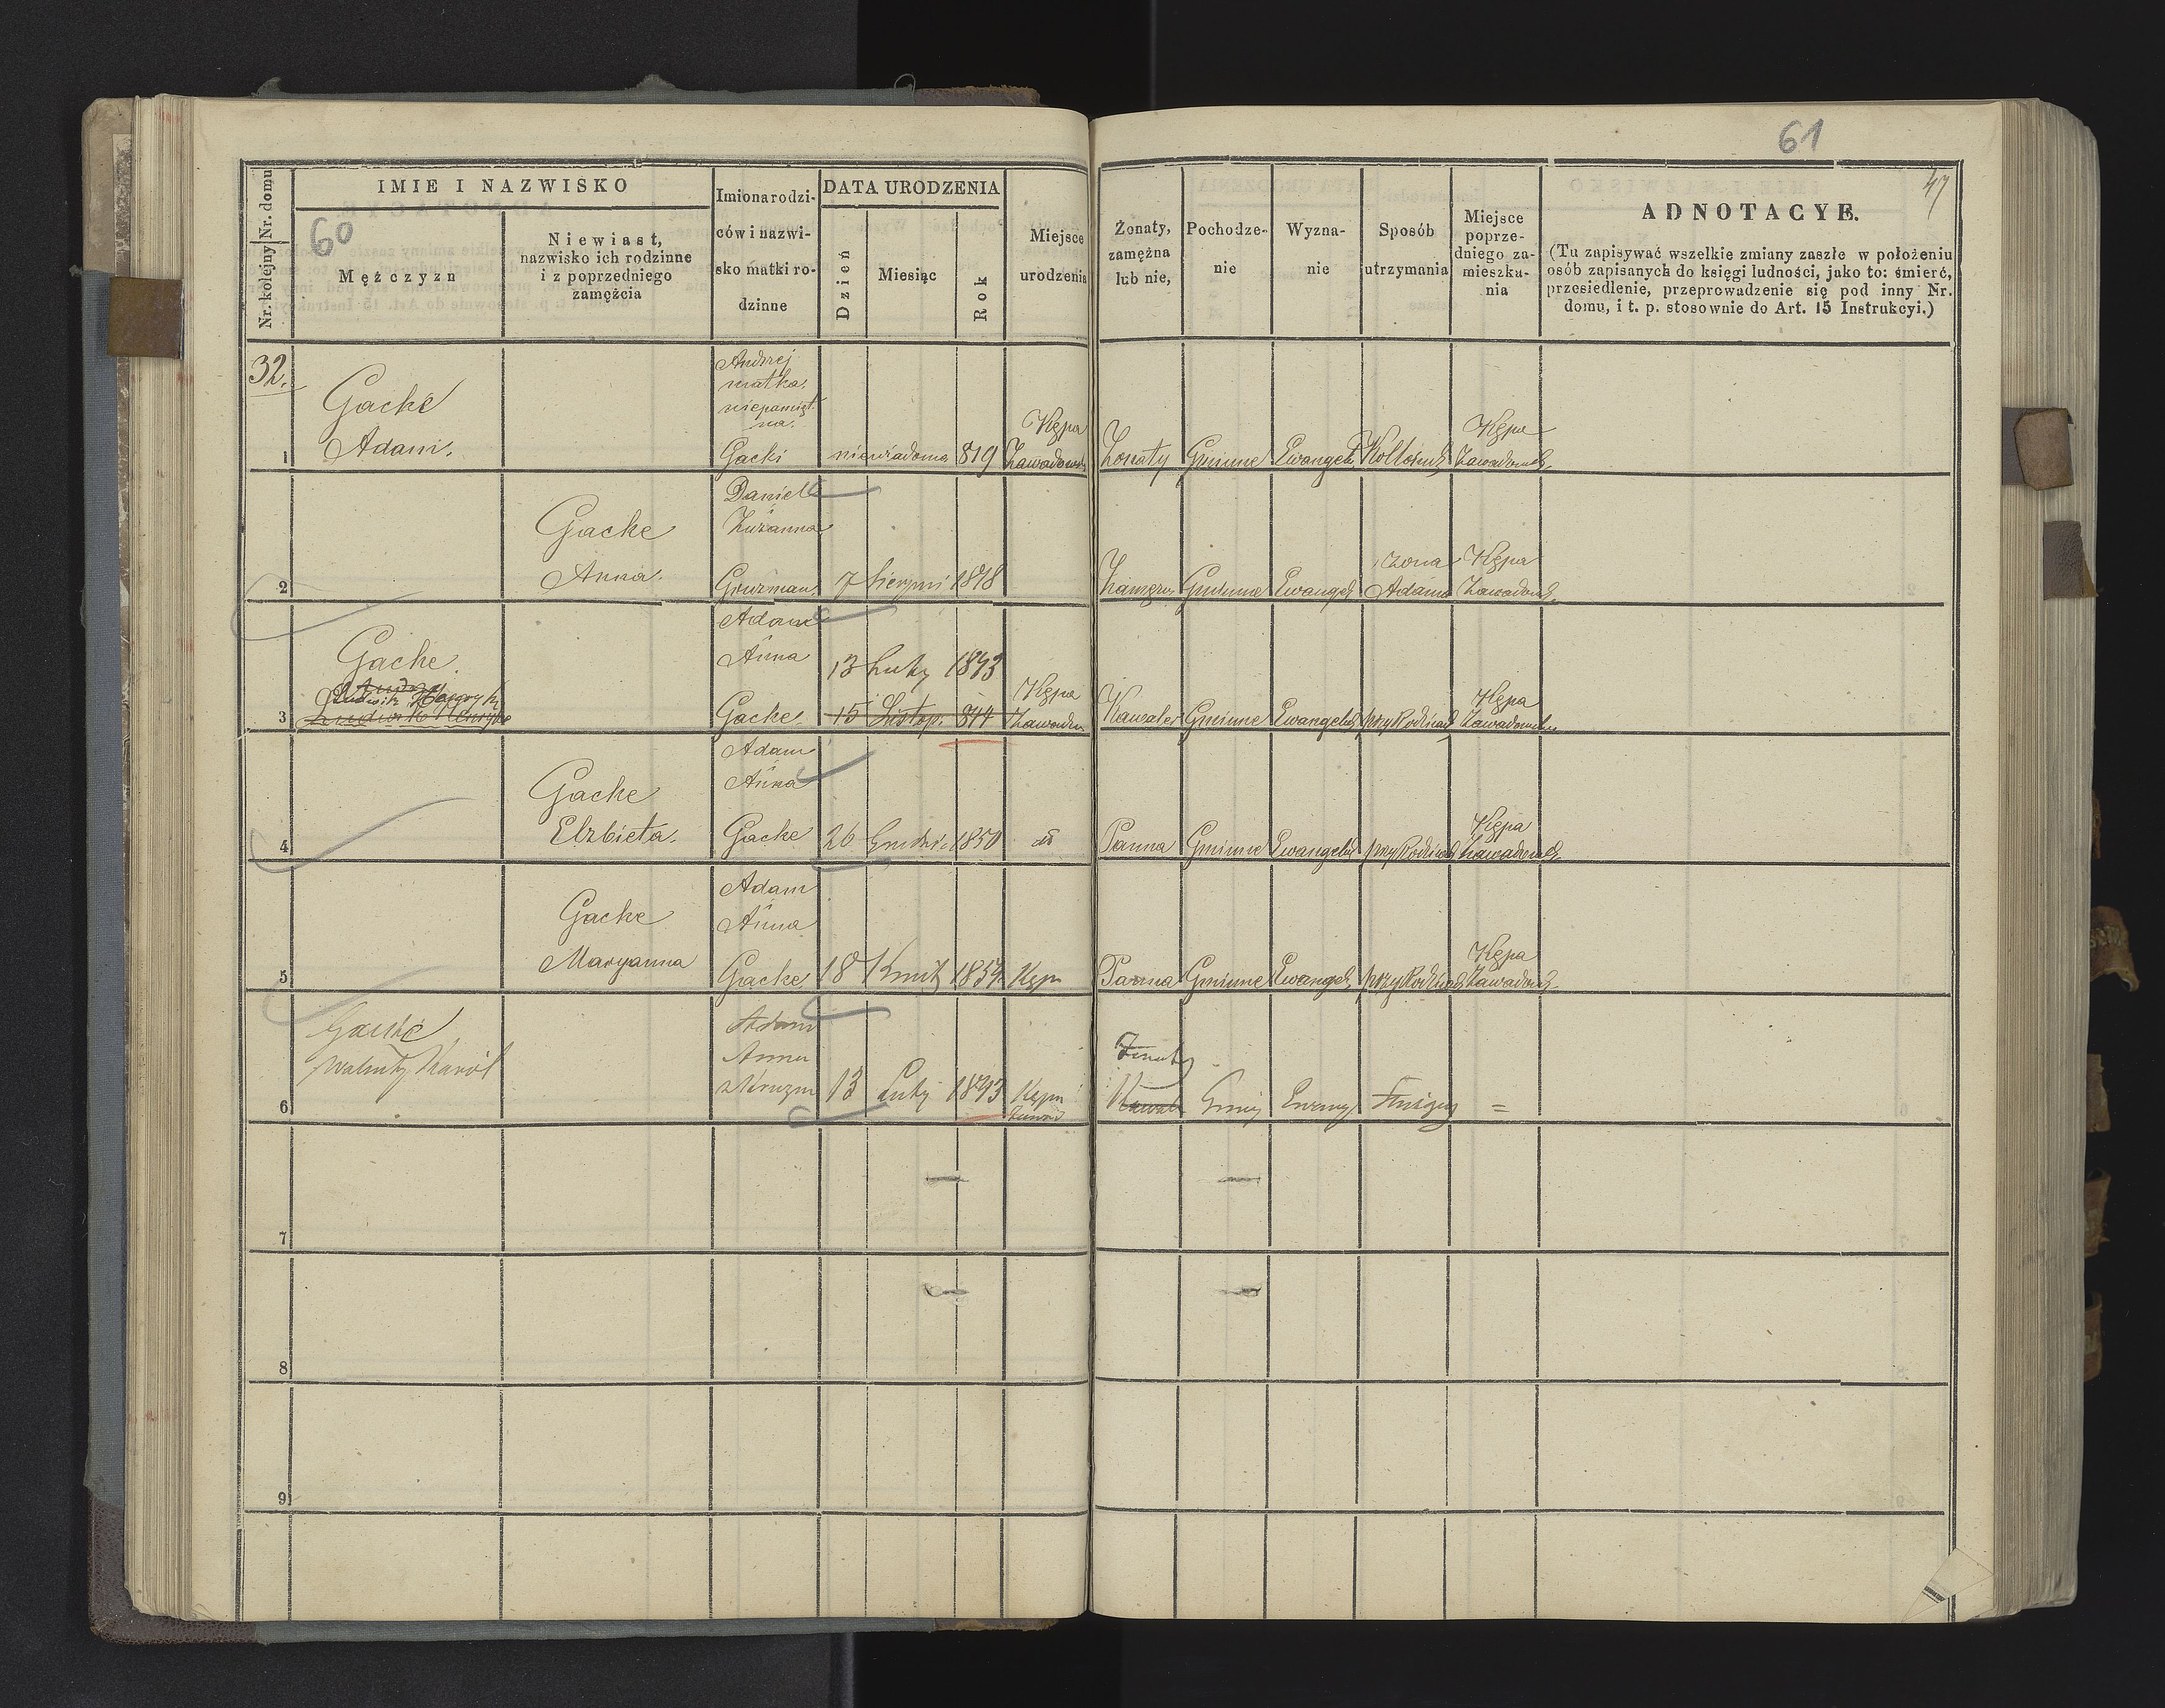 60
61
47
Nr. kolejny Nr. domu
IMIE I NAZWISKO
Mężczyzn
Niewiast,
nazwisko ich rodzinne
i z poprzedniego
zamężcia
Imiona rodzi-
ców i nazwi-
sko matki ro-
dzinne
DATA URODZENIA
Dzień
Miesiąc
Rok
Miejsce
urodzenia
Żonaty,
zamężna
lub nie,
Pochodze-
nie
Wyzna-
nie
Sposób
utrzymania
Miejsce
poprze-
dniego za-
mieszka-
nia
ADNOTACYE.
(Tu zapisywać wszelkie zmiany zaszłe w położeniu
osób zapisanych do księgi ludności, jako to: śmierć,
przesiedlenie, przeprowadzenie się pod inny Nr.
domu, i t. p. stosownie do Art. 15 Instrukcyi.)
32.
1
Gacke
Adam.
Andrej
matka
niepamięt
na.
Gacki
niewiadoma 819
Kępa
Zawadows
Żonaty
Gminne
Ewangeli
Kępa
Zawadowsk
2
Gacke
Anna.
Daniel
Zuzanna
7 Sierpni 1818
Gminne
Ewangel
Żona
Adama
Kępa
Zawadowsk
3
Gacke
Adam
Anna
Gacke
13 Luty 1843
15 Listop. 844
Kępa
Kawaler
Gminne
Ewangelick
przy Rodzicach
Kępa
Zawadowsk
4
Gacke
Elzbieta.
Adam
Anna
Gacke
26 Grudzi. 1850
Panna
Gminne
Ewangelick
przy Rodzicach
Kępa
Zawadowsk
5
Gacke
Maryanna
Adam
Anna
Gacke
18 Kwiet 1854
Kępa
Panna
Gminne
Ewangel
przy Rodzicach
Kępa
Zawadowsk
6
Gacke
Karol
Adam
Anna
13 Luty 1843
Kępa
Zawad
Żonaty
Kawal
=
7
8
9